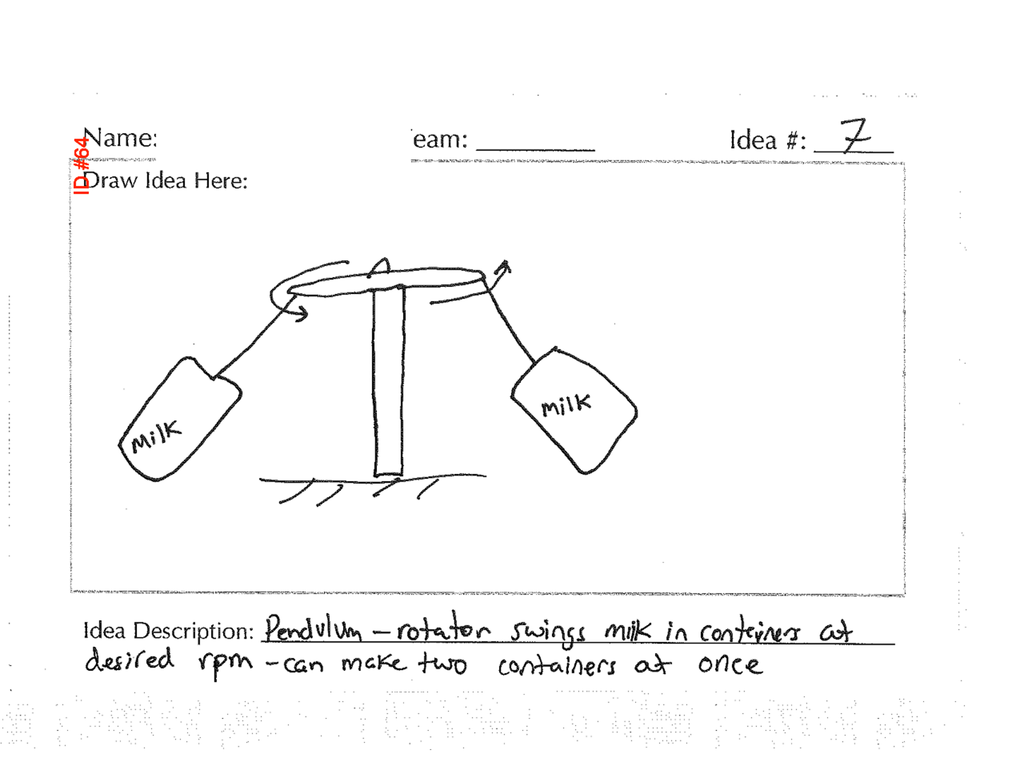 ID #64
Name: eam: Idea #: 7
Draw Idea Here:
Milk
Milk
Idea Description: Pendulum - rotator swings milk in containers at
desired rpm - can make two containers at once